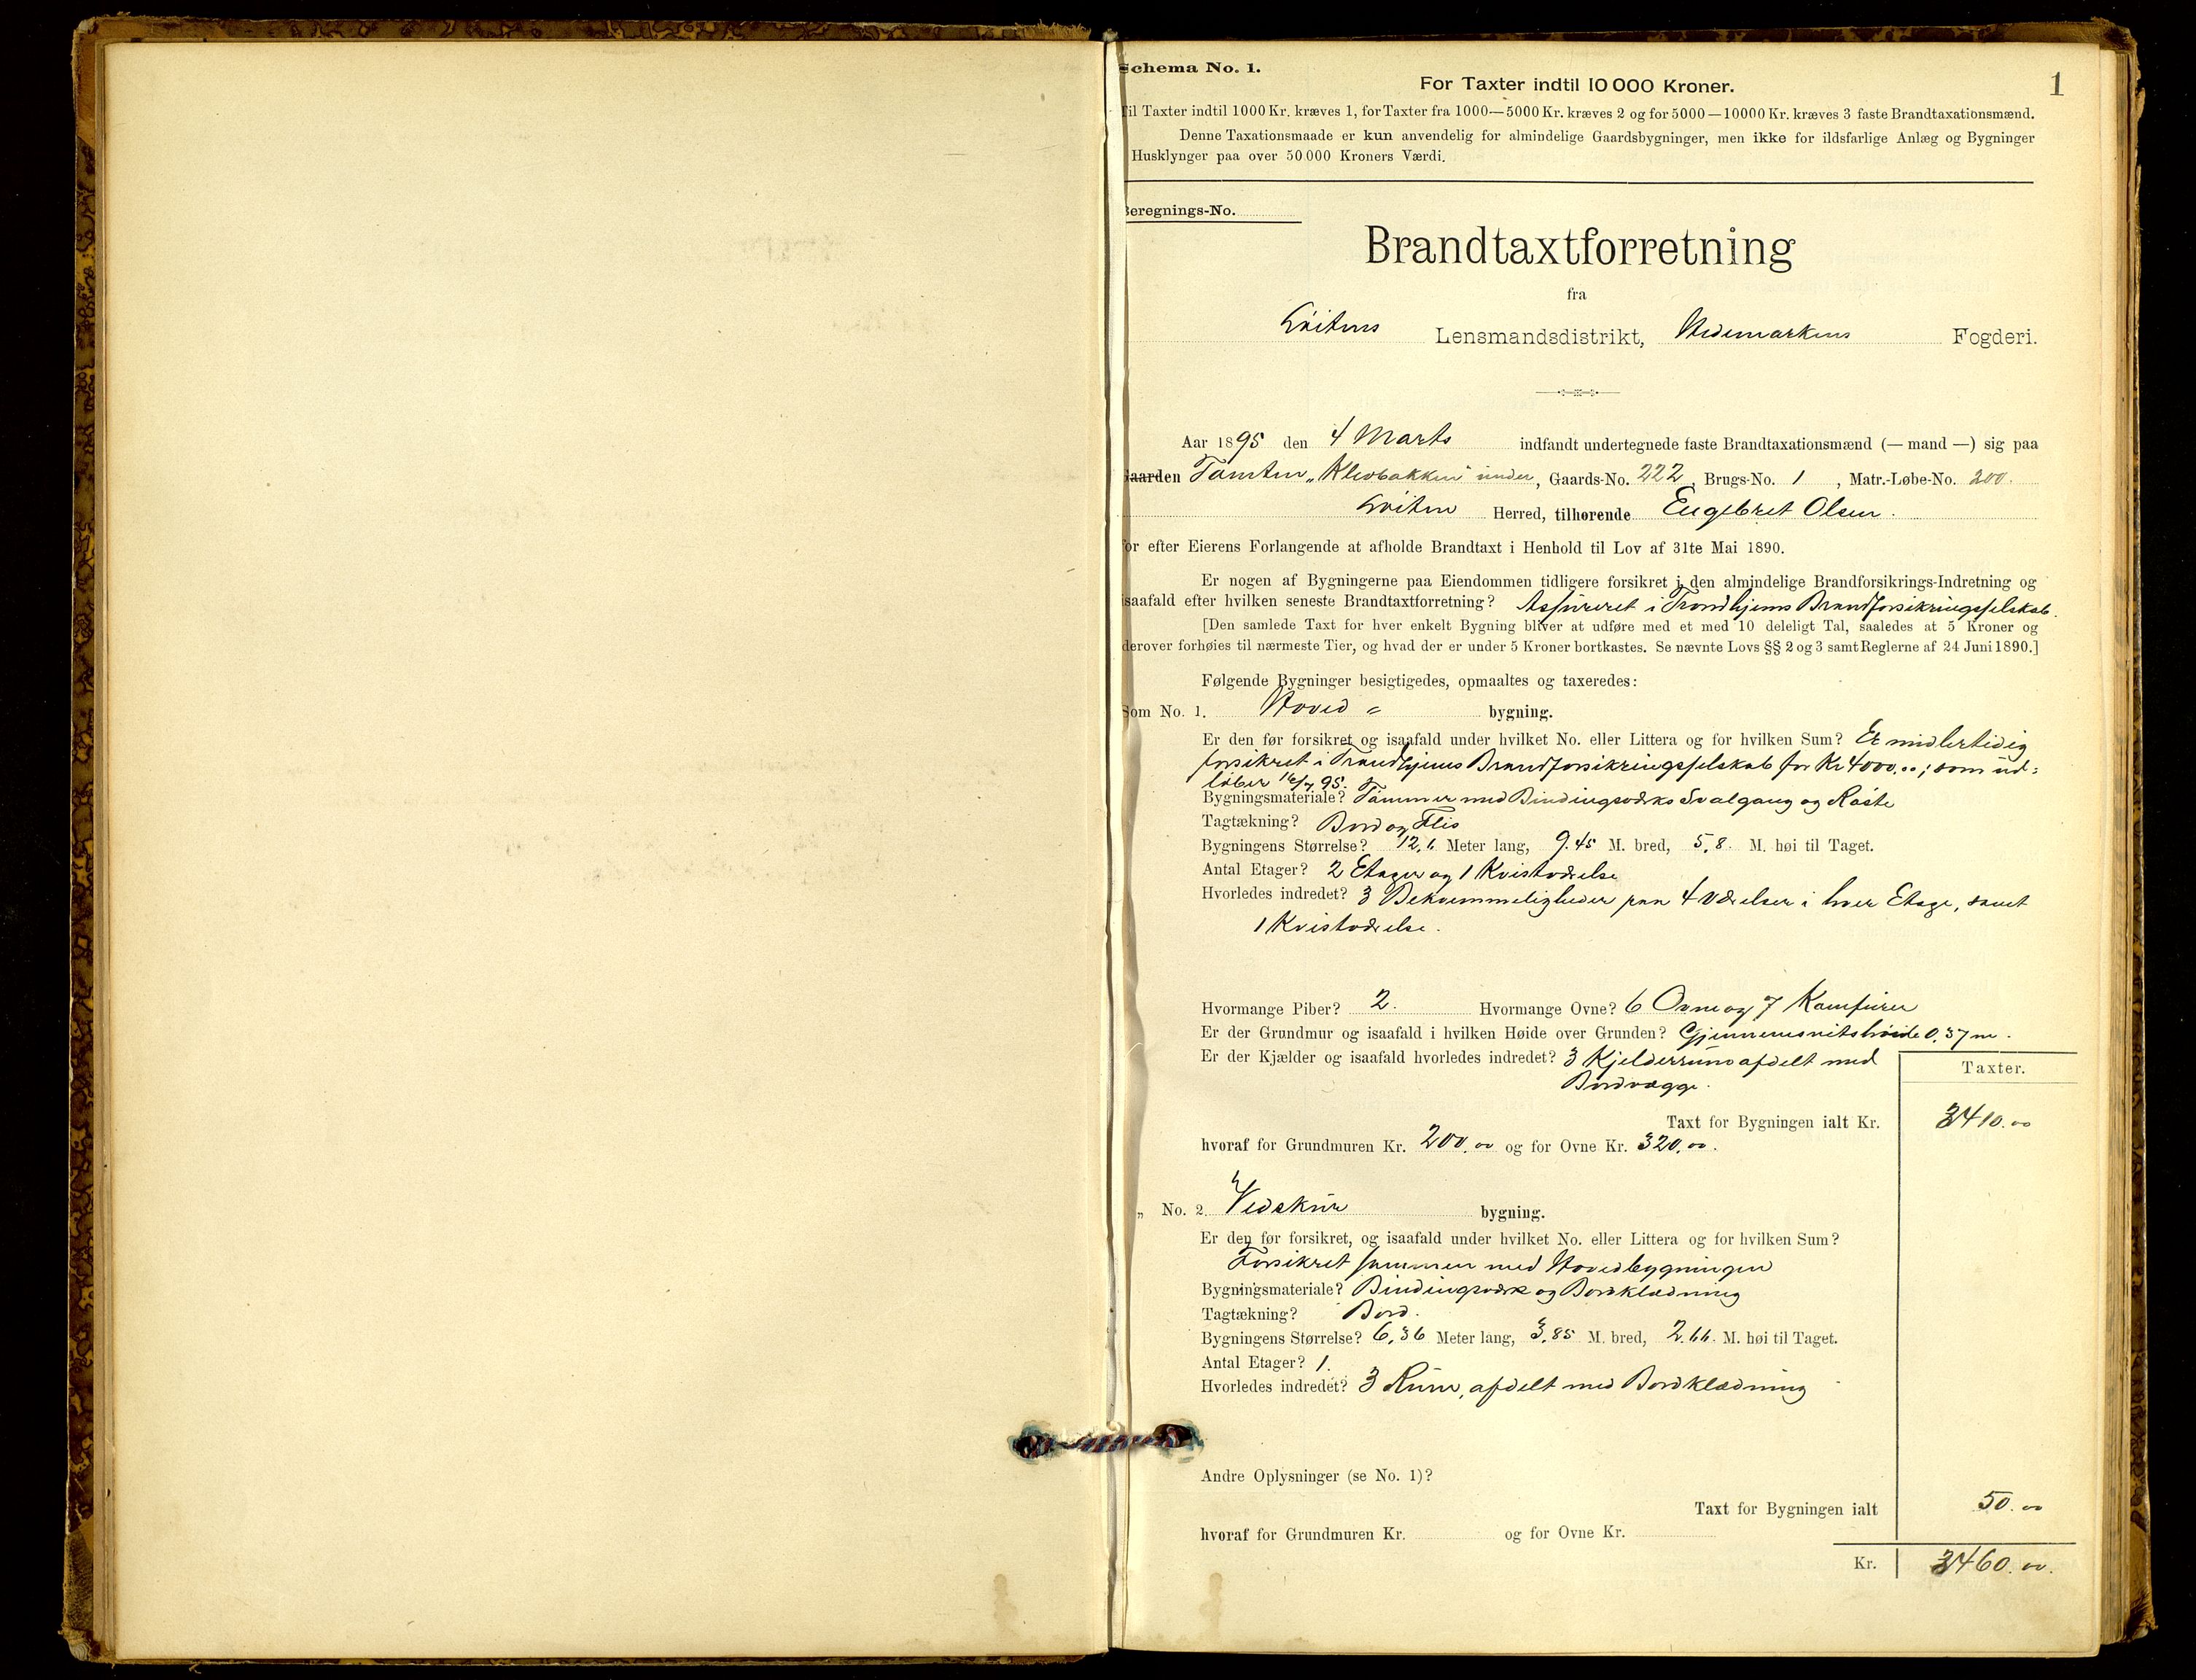 1
Schema No. 1.
For Taxter indtil 10 000 Kroner.
Til Taxter indtil 1000 Kr. kræves 1, for Taxter fra 1000—5000 Kr. kræves 2 og for 5000—10000 Kr. kræves 3 faste Brandtaxationsmænd.
Denne Taxationsmaade er kun anvendelig for almindelige Gaardsbygninger, men ikke for ildsfarlige Anlæg og Bygninger
Husklynger paa over 50 000 Kroners Værdi.
Beregnings-No.
Brandtaxtforretning
fra
Löitens Lensmandsdistrikt, Hedemarkens Fogderi.
Aar 1895 den 4 Marts indfandt undertegnede faste Brandtaxationsmænd (— mand —) sig paa
Gaarden Tomten „Klevbakken" under, Gaards-No. 222, Brugs-No. 1, Matr.-Løbe-No. 200.
Löiten Herred, tilhørende Engebret Olsen.
for efter Eierens Forlangende at afholde Brandtaxt i Henhold til Lov af 31te Mai 1890.
Er nogen af Bygningerne paa Eiendommen tidligere forsikret i den almindelige Brandforsikrings-Indretning og
isaafald efter hvilken seneste Brandtaxtforretning? Assureret i Trondhjems Brandforsikringsselskab.
[Den samlede Taxt for hver enkelt Bygning bliver at udføre med et med 10 deleligt Tal, saaledes at 5 Kroner og
derover forhøies til nærmeste Tier, og hvad der er under 5 Kroner bortkastes. Se nævnte Lovs §§ 2 og 3 samt Reglerne af 24 Juni 1890.]
Følgende Bygninger besigtigedes, opmaaltes og taxeredes:
Som No. 1. Hoved = bygning.
Er den før forsikret og isaafald under hvilket No. eller Littera og for hvilken Sum? Er midlertidig
forsikret i Trondhjems Brandforsikringsselskab for Kr 4000.00; som ud=
løber 16/7 95.
Bygningsmateriale? Tömmer med Bindingsværks Svalgang og Röste
Tagtækning? Bord og Flis
Bygningens Størrelse? 12,6 Meter lang, 9.45 M. bred, 5,8. M. høi til Taget.
Antal Etager? 2 Etager og 1 Kvistværelse
Hvorledes indredet? 3 Bekvemmeligheder paa 4 Værelser i hver Etage, samt
1 Kvistværelse.
Hvormange Piber? 2. Hvormange Ovne? 6 Ovne og 7 Komfurer
Er der Grundmur og isaafald i hvilken Høide over Grunden? Gjennemsnitshöide 0,37 m.
Er der Kjælder og isaafald hvorledes indredet? 3 Kjelderrum afdelt med
Bordvægge.
Taxter.
Taxt for Bygningen ialt Kr. 3410.00
hvoraf for Grundmuren Kr. 200.00 og for Ovne Kr. 320.00.
„ No. 2. Vedskur bygning.
Er den før forsikret, og isaafald under hvilket No. eller Littera og for hvilken Sum?
Forsikret sammen med Hovedbygningen
Bygningsmateriale? Bindingsværk og Bordklædning
Tagtækning? Bord.
Bygningens Størrelse? 6,36 Meter lang, 3,85 M. bred, 2.66. M. høi til Taget.
Antal Etager? 1.
Hvorledes indredet? 3 Rum, afdelt med Bordklædning
Andre Oplysninger (se No. 1)?
Taxt for Bygningen ialt 50.00
hvoraf for Grundmuren Kr. og for Ovne Kr.
Kr. 3460.00.